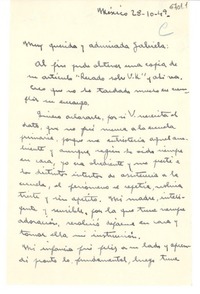 México 28-10-49
Muy querida y admirada Gabriela:
Al fin pude obtener una copia de
su artículo "Recado sobre V.K." y ahí va,
creo que no he tardado mucho en cum-
plir su encargo.
Quiero aclararle, por si V. necesita el
dato, que no fuí nunca a la escuela
primaria, porque me entristecía aquel am-
biente y aunque según he oído siempre
en casa, yo era obediente y me presté a
los distintos intentos de asistencia a la
escuela, el fenómeno se repetía, volvía
triste y sin apetito. Mi madre, inteli-
gente y sensible, por la que tuve siempre
adoración, resolvió dejarme en casa y
tomar ella mi instrucción.
Mi infancia fué feliz a su lado y apren-
dí pronto lo fundamental, luego tuve